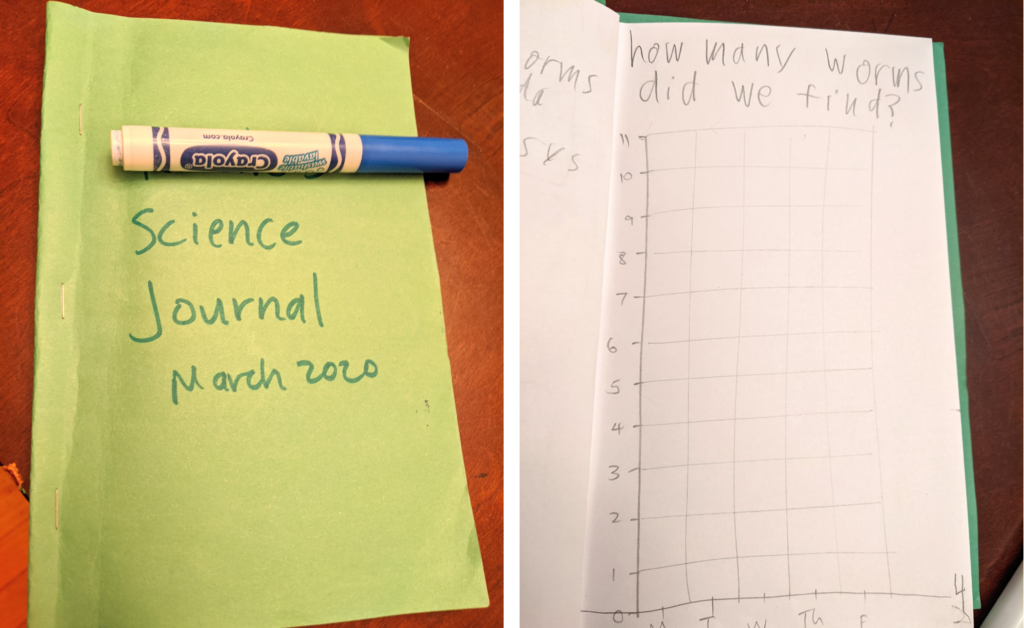 Crayola.com
Crayola
washable
Science
Journal
March 2020
how many worms
did we find?
11
10
9
8
7
6
5
4
3
2
1
0
M T W Th F
4